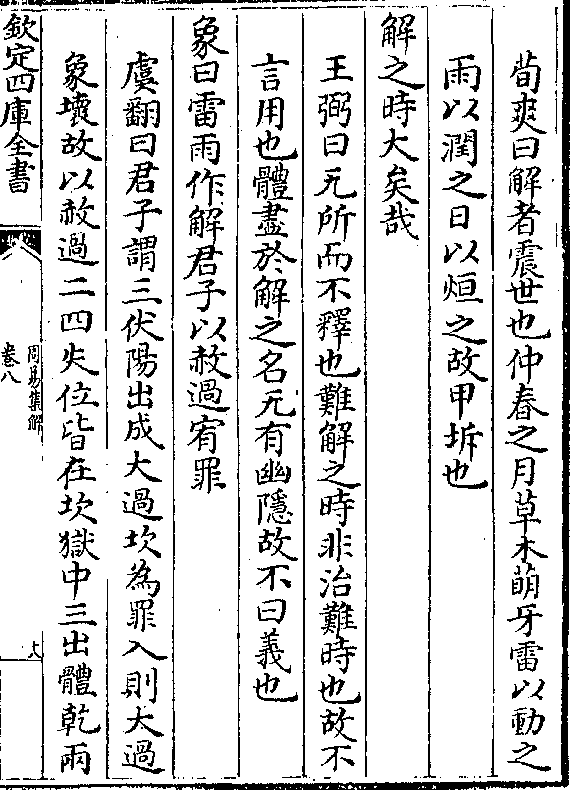 荀爽曰解者震世也仲春之月草木萌牙雷以動之
雨以潤之日以烜之故甲坼也
解之時大矣哉
王弼曰无所而不釋也難解之時非治難時也故不
言用也體盡於解之名无有幽隱故不曰義也
象曰雷雨作解君子以赦過宥罪
虞翻曰君子謂三伏陽出成大過坎為罪入則大過
象壞故以赦過二四失位皆在坎獄中三出體乾兩
欽定四庫全書
周易集解
卷八